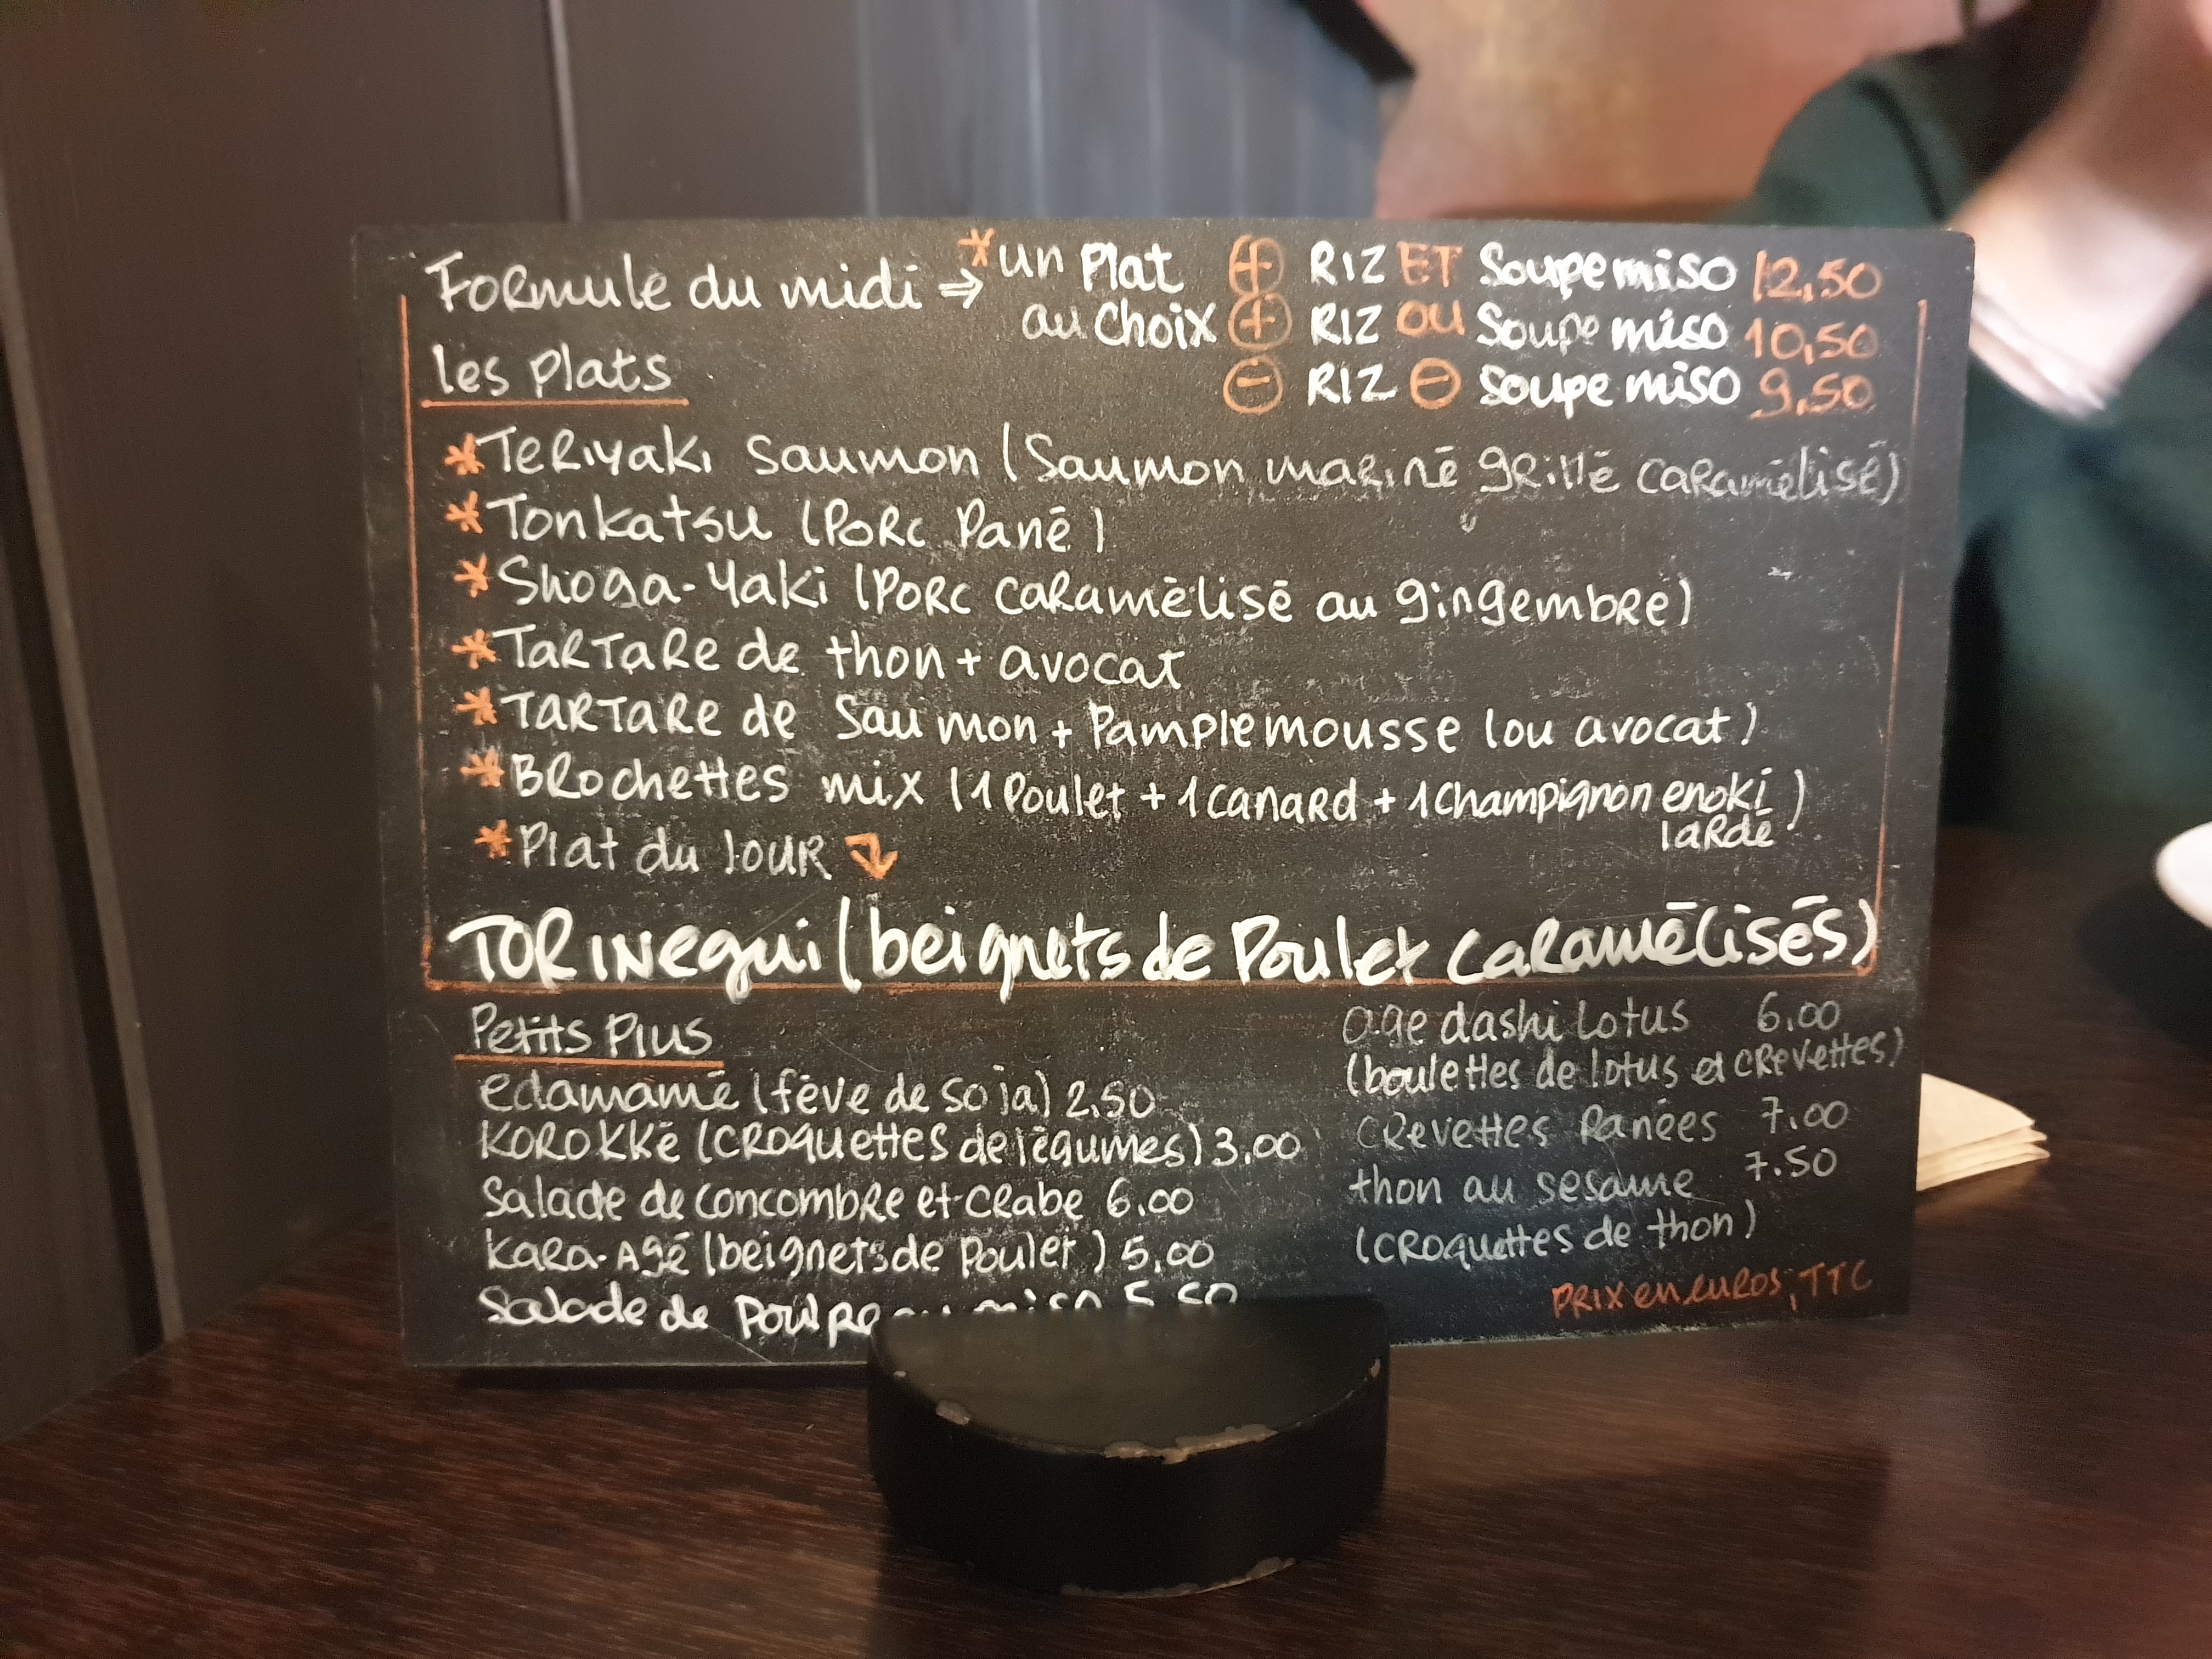 Formule du midi ⇒ *un Plat au choix
⊕ RIZ ET Soupe miso 12,50
⊕ RIZ OU Soupe miso 10,50
⊖ RIZ ⊖ Soupe miso 9,50
les plats
*Teriyaki saumon (Saumon mariné grillé caramélisé)
*Tonkatsu (Porc Pané)
*Shoga-Yaki (Porc caramélisé au gingembre)
*Tartare de thon + avocat
*Tartare de saumon + Pamplemousse (ou avocat)
*Brochettes mix (1 Poulet + 1 canard + 1 champignon enoki lardé)
*Plat du Jour
TORINegui (beignets de Poulet caramélisés)
Petits Plus
edamamé (fève de soja) 2.50
KOROKKé (croquettes de légumes) 3,00
Salade de concombre et crabe 6.00
Kara-Agé (beignets de Poulet) 5,00
Salade de Poulpe miso 5.50
age dashi lotus 6.00
(boulettes de lotus et crevettes)
crevettes Panées 7.00
thon au sesame 7.50
(croquettes de thon)
PRIX en euros, TTC